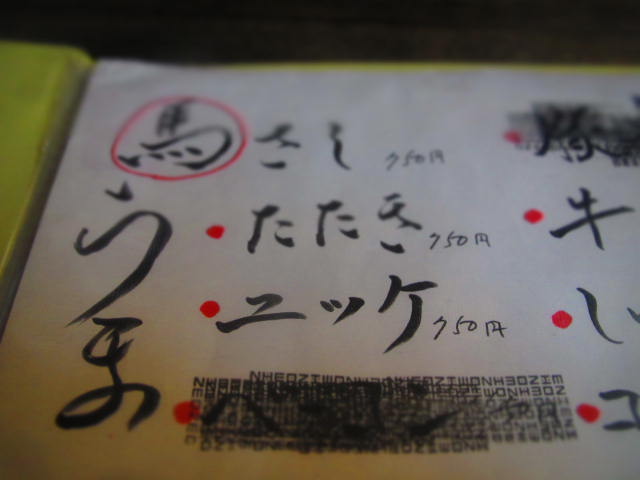 馬さし 750円
うま
たたき 750円
牛
ユッケ 750円
し
コ